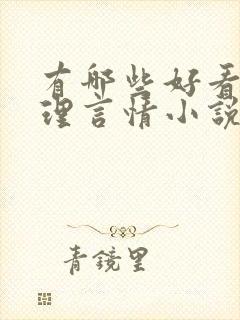 有哪些好看
理言情小說
青鏡里